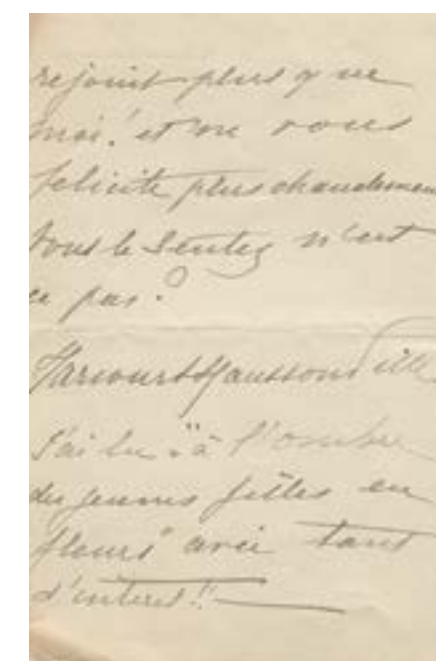 rejouit plus que
moi! et ne vous
felicite plus chaudement
Vous le Sentez n'est
ce pas?
Harcourt Haussonville
J'ai lu "à l'ombre
des jeunes filles en
fleurs" avec tant
d'interet!!